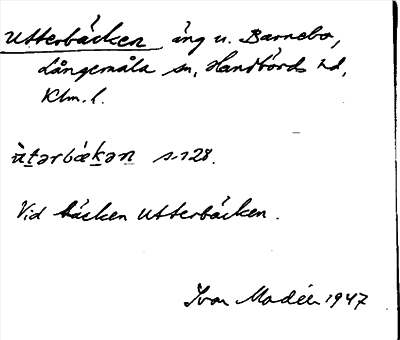 Utterbäcken äng u. Barnebo,
Långemåla sn, Handbörds hd,
Klm. l.
ù̀tərbækən s. 128.
Vid bäcken Utterbäcken.
Ivar Modéer 1947